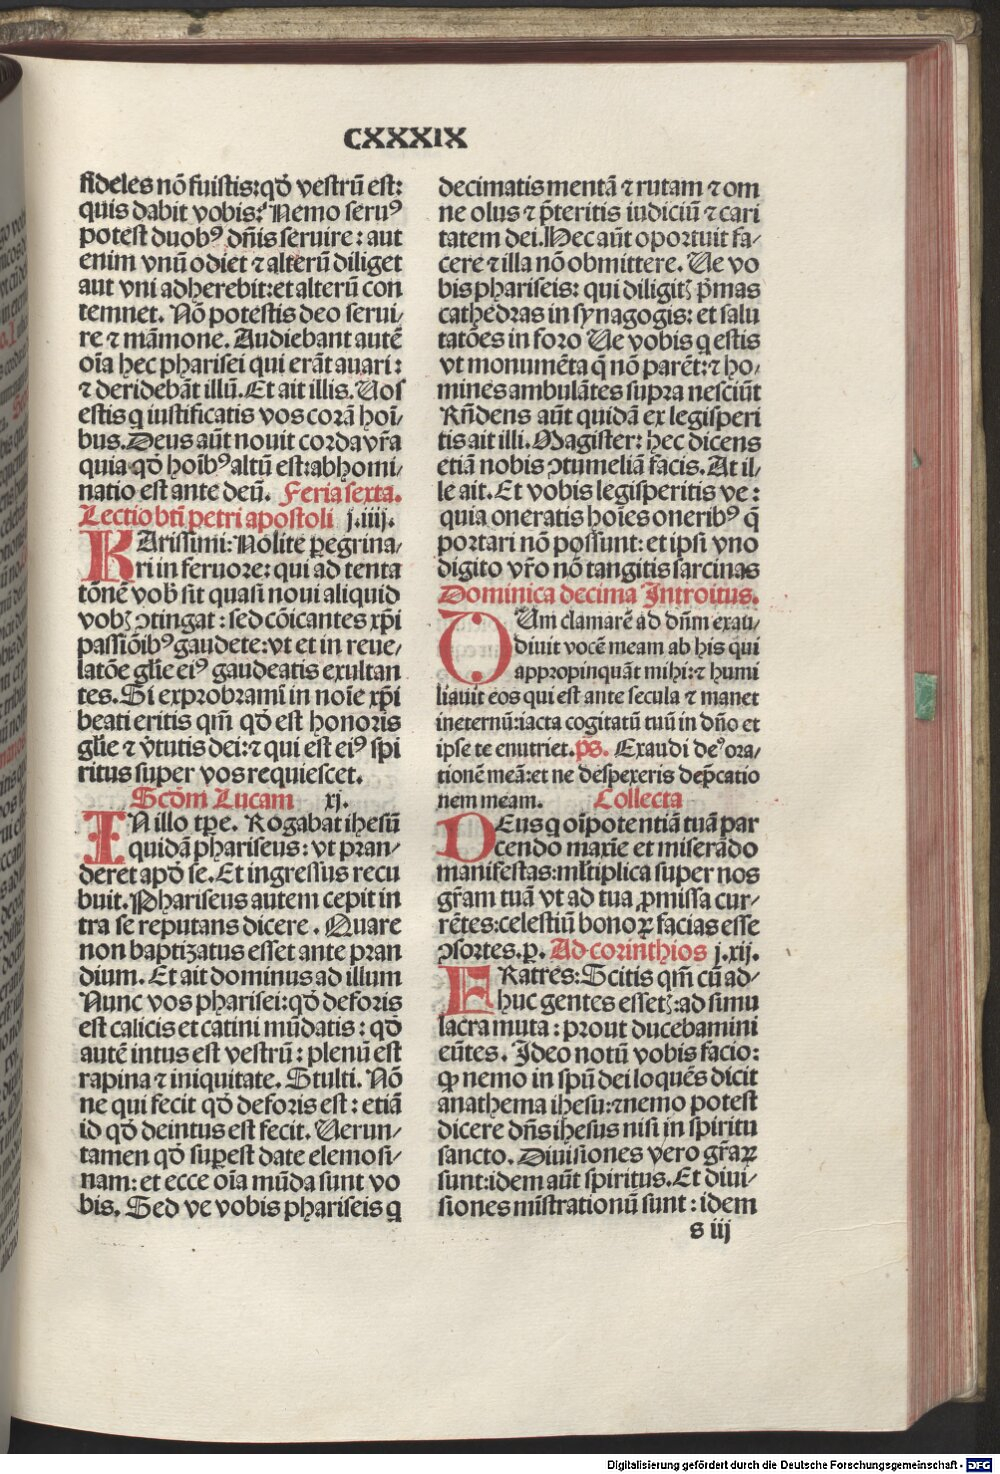 CXXXIX
fideles nō fuistis:qđ vestrū est:
quis dabit vobis? Nemo seruꝰ
potest duobꝰ dn̄is seruire: aut
enim vnū odiet ⁊ alterū diliget
aut vni adherebit:et alterū con
temnet. Nō potestis deo serui/
re ⁊ māmone. Audiebant autē
oīa hec pharisei qui erāt auari:
⁊ deridebāt illū. Et ait illis. Uos
estis q iustificatis vos corā hoī
bus. Deus aūt nouit corda vr̄a
quia qđ hoībꝰ altū est:abhomi/
natio est ante deū. Feria sexta.
Lectio btī petri apostoli j.iiij.
KArissimi: Nolite ꝑegrina/
ri in feruore: qui ad tenta
tōnē vob̄ sit quasi noui aliquid
vobꝫ ꝯtingat: sed cōicantes xp̄i
passiōibꝰ gaudete:vt et in reue/
latōe gl̄ie eiꝰ gaudeatis exultan
tes. Si exprobramī in noīe xp̄i
beati eritis qm̄ qđ est honoris
gl̄ie ⁊ v̄tutis dei:⁊ qui est eiꝰ spi
ritus super vos requiescet.
Scđm Lucam xj.
IN illo tp̄e. Rogabat ihesū
quidā phariseus: vt pran/
deret apđ se. Et ingressus recu
buit. Phariseus autem cepit in
tra se reputans dicere. Quare
non baptizatus esset ante pran
dium. Et ait dominus ad illum
Nunc vos pharisei:qđ deforis
est calicis et catini mūdatis: qđ
autē intus est vestrū: plenū est
rapina ⁊ iniquitate. Stulti. Nō
ne qui fecit qđ deforis est: etiā
id qđ deintus est fecit. Uerun/
tamen qđ suꝑest date elemosi/
nam: et ecce oīa mūda sunt vo
bis. Sed ve vobis phariseis q
decimatis mentā ⁊ rutam ⁊ om
ne olus ⁊ p̄teritis iudiciū ⁊ cari
tatem dei. Hec aūt oportuit fa/
cere ⁊ illa nō obmittere. Ue vo
bis phariseis: qui diligitꝫ p̄mas
cathedras in synagogis: et salu
tatōes in foro Ue vobis q estis
vt monumēta q̄ nō parēt:⁊ ho/
mines ambulātes supra nesciūt
Rn̄dens aūt quidā ex legisperi
tis ait illi. Magister: hec dicens
etiā nobis ꝯtumeliā facis. At il/
le ait. Et vobis legisperitis ve:
quia oneratis hoīes oneribꝰ q̄
portari nō possunt: et ipsi vno
digito vr̄o nō tangitis sarcinas
Dominica decima Introitus.
DUm clamarē ad dn̄m exau/
diuit vocē meam ab his qui
appropinquāt mihi:⁊ humi
liauit eos qui est ante secula ⁊ manet
ineternū:iacta cogitatū tuū in dn̄o et
ipse te enutriet. p̄s. Exaudi deꝰ ora/
tionē meā:et ne despexeris dep̄catio
nem meam. Collecta
DEus q oīpotentiā tuā par
cendo maxīe et miserādo
manifestas:ml̄tiplica super nos
gr̄am tuā vt ad tua ꝓmissa cur/
rētes:celestiū bonoꝝ facias esse
ꝯsortes. p. Ad corinthios j.xij.
FRatres: Scitis qm̄ cū ad/
huc gentes essetꝫ:ad simu
lacra muta: prout ducebamini
eūtes. Ideo notū vobis facio:
ꝙ nemo in spū dei loquēs dicit
anathema ihesu:⁊ nemo potest
dicere dn̄s ihesus nisi in spiritu
sancto. Diuisiones vero gr̄aꝝ
sunt:idem aūt spiritus. Et diui/
siones mīstrationū sunt: idem
s iij
Digitalisierung gefördert durch die Deutsche Forschungsgemeinschaft - DFG